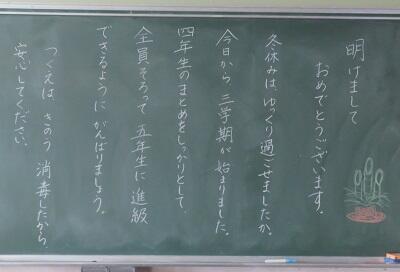 明けまして
おめでとうございます。
冬休みは、ゆっくり過ごせましたか。
今日から 三学期が 始まりました。
四年生のまとめをしっかりとして、
全員、そろって 五年生に 進級
できるように がんばりましょう。
つくえは、きのう 消毒したから、
安心してください。